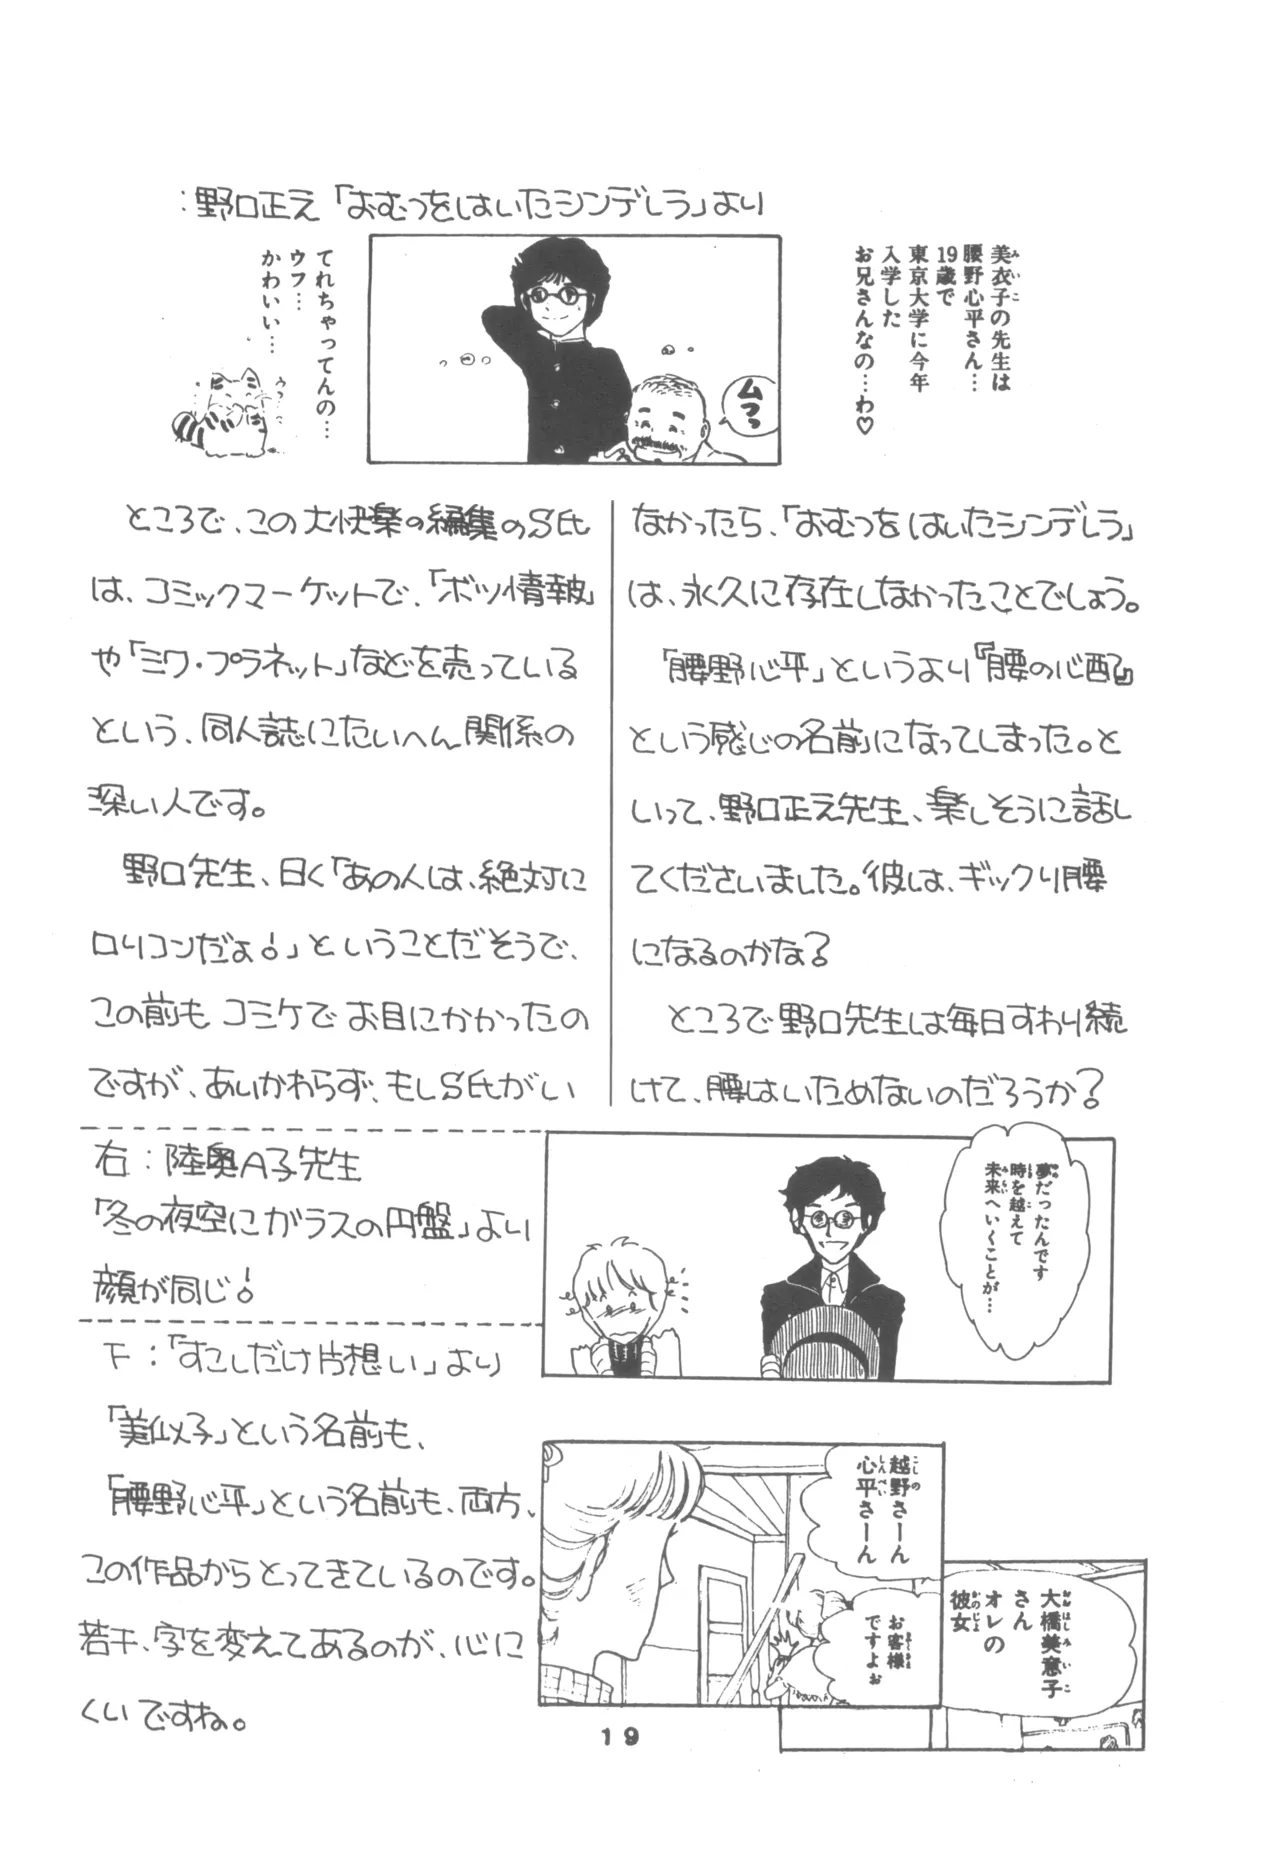 ：野口正之「おむつをはいたシンデレラ」より
美衣子の先生は
腰野心平さん…
19歳で
東京大学に今年
入学した
お兄さんなの…わ♡
ムフッ
てれちゃってんの…
ウフ…
かわいい…
ところで、この大快楽の編集のS氏
は、コミックマーケットで、「ボツ情報」
や「ミワ・プラネット」などを売っている
という、同人誌にたいへん関係の
深い人です。
野口先生、曰く「あの人は、絶対に
ロリコンだよ!」ということだそうで、
この前も、コミケでお目にかかったの
ですが、あいかわらず、もしS氏がい
なかったら、「おむつをはいたシンデレラ」
は、永久に存在しなかったことでしょう。
「腰野心平」というより『腰の心配』
という感じの名前になってしまった。と
いって、野口正之先生、楽しそうに話し
てくださいました。彼は、ギックリ腰
になるのかな?
ところで野口先生は毎日すわり続
けて、腰はいためないのだろうか?
右：陸奥A子先生
「冬の夜空にガラスの円盤」より
顔が同じ!
夢だったんです
時を越えて
未来へいくことが…
下：「すこしだけ片想い」より
「美似子」という名前も、
「腰野心平」という名前も、両方、
この作品からとってきているのです。
若干、字を変えてあるのが、心に
くいですね。
越野さーん
心平さーん
お客様
ですよぉ
大橋美意子
さん
オレの
彼女
19